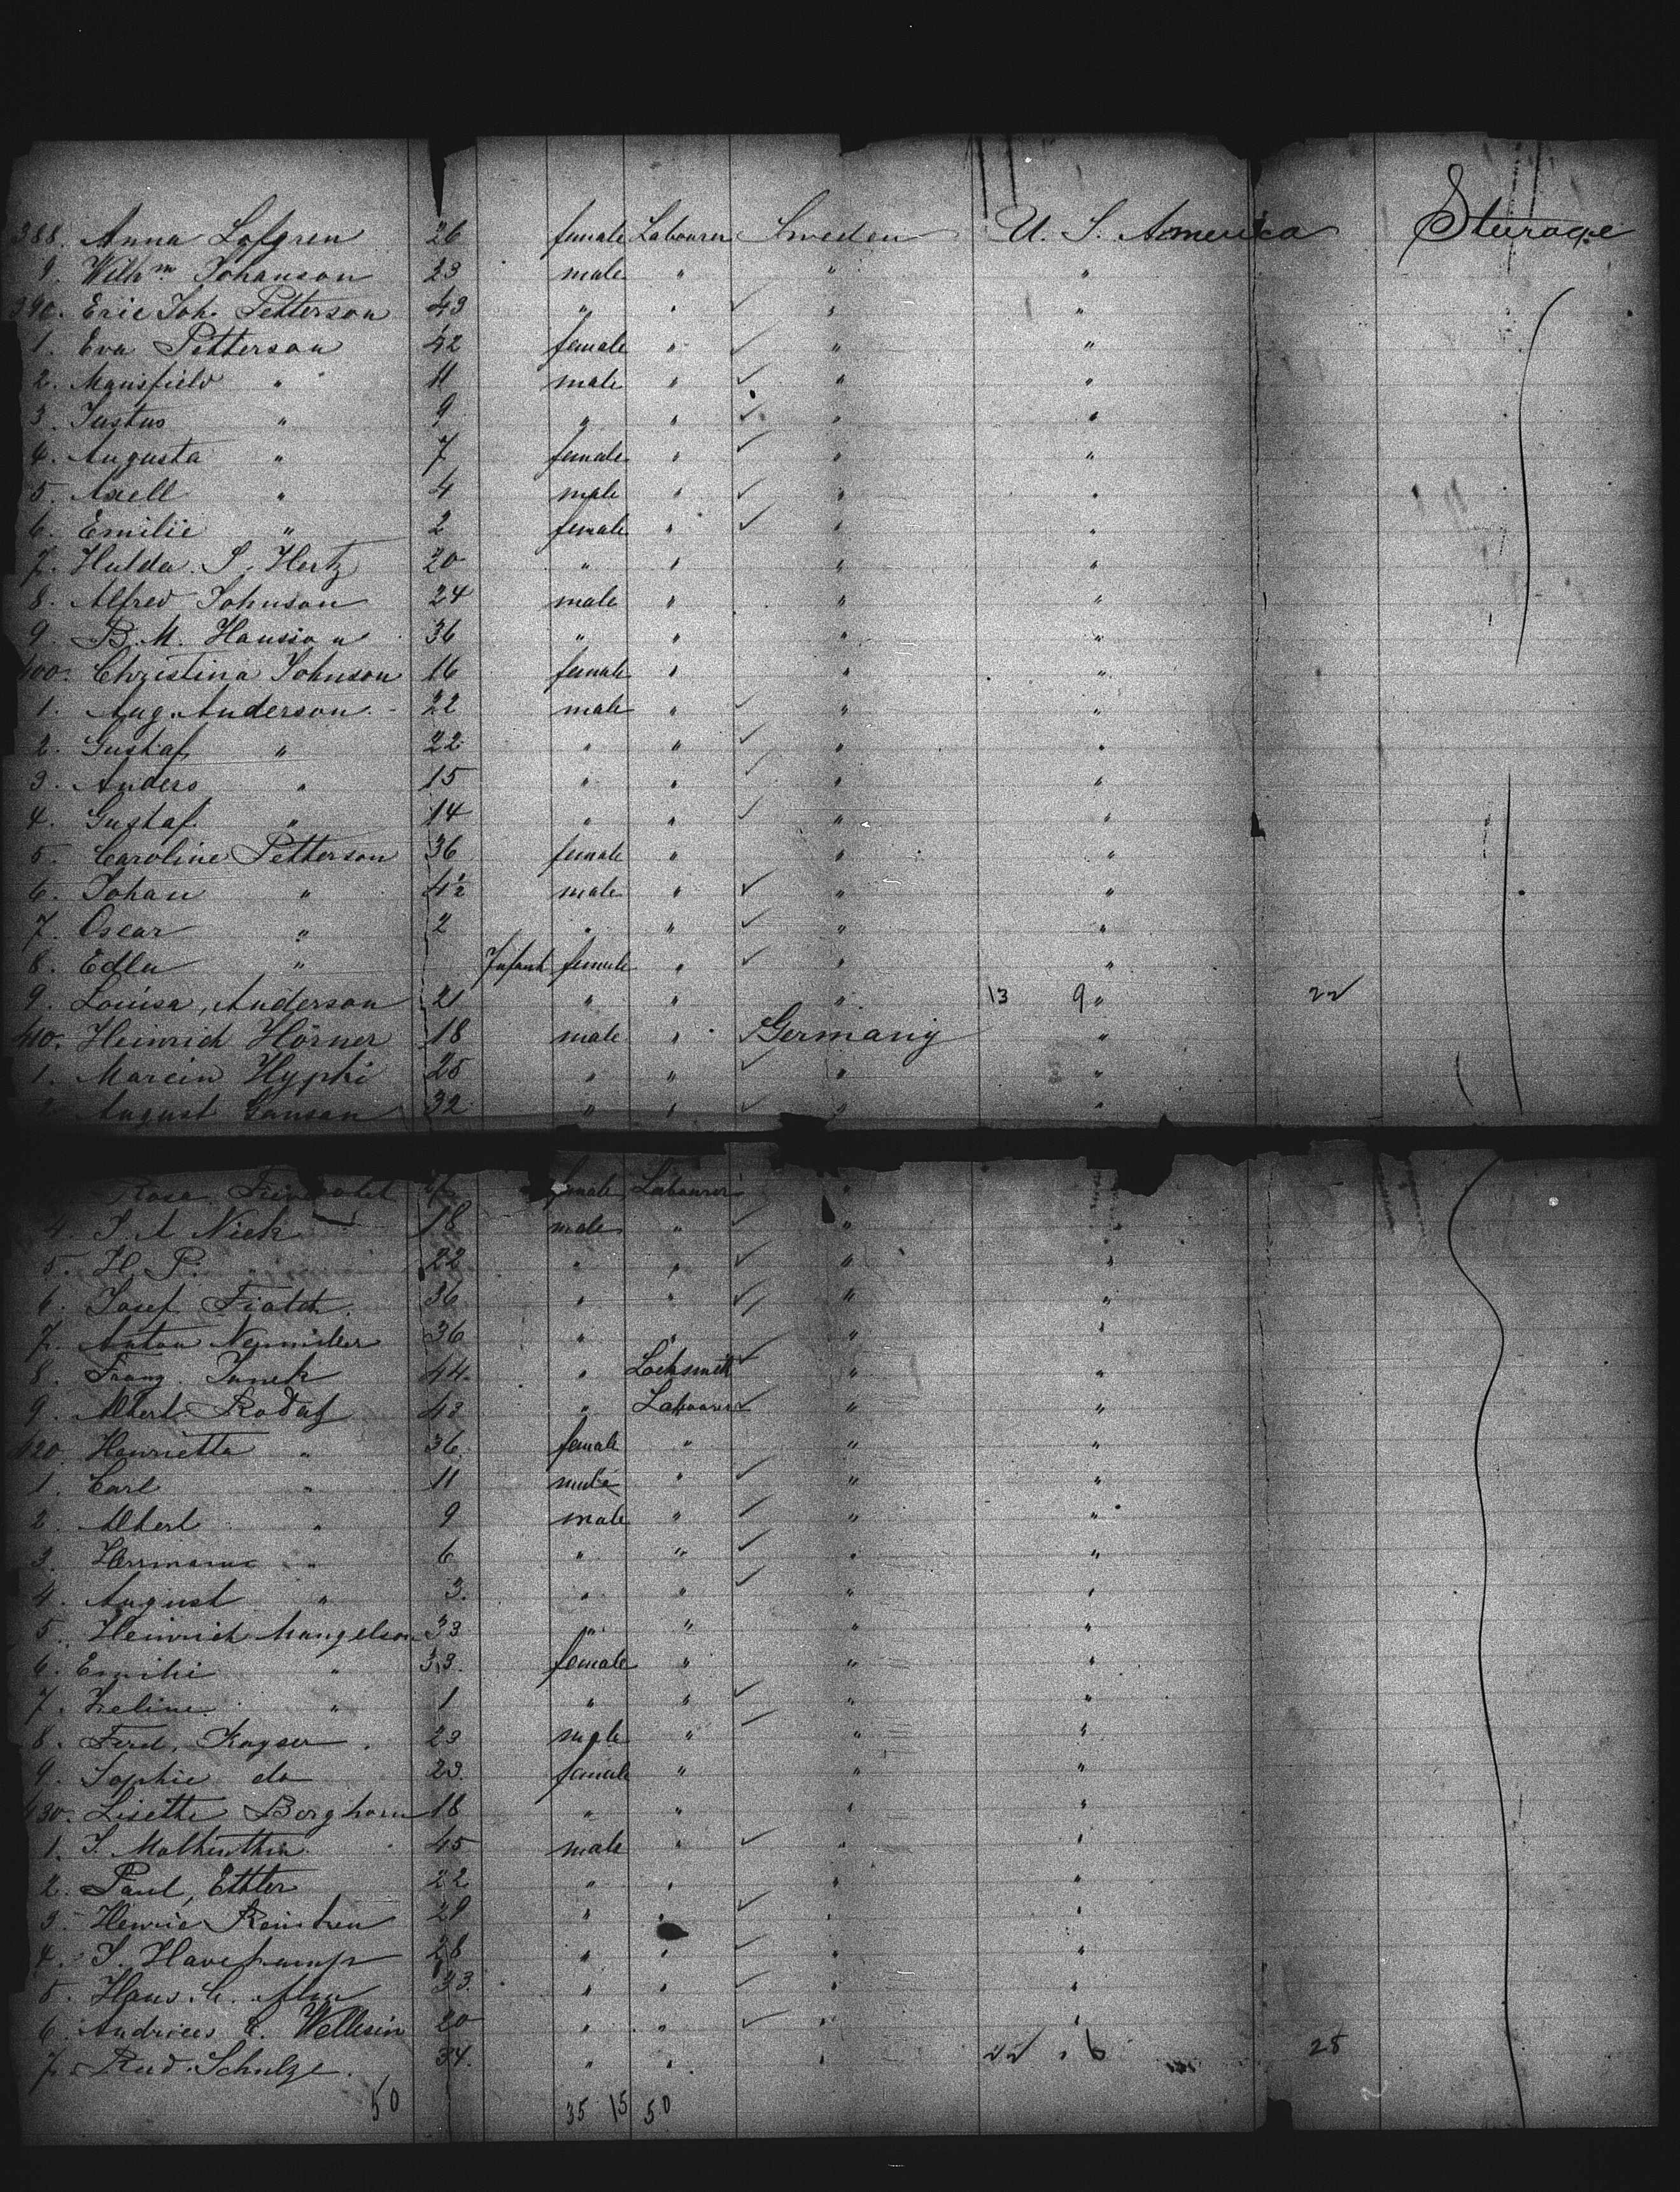 388. Anna Lofgren 26 female Labourer Sweden U. S. America Steerage
9. Wilhm Johanson 23 male " " "
390. Eric Joh. Petterson 43 " " " "
1. Eva Petterson 42 female " " "
2. Mansfield " 11 male " " "
3. Justus " 9 " " " "
4. Augusta " 7 female " " "
5. Axell " 4 male " " "
6. Emilie " 2 female " " "
7. Hulda S. Hertz 20 " " " "
8. Alfred Johnson 24 male " " "
9. B. M. Hansson 36 " " " "
400. Christina Johnson 16 female " " "
1. Aug. Anderson 22 male " " "
2. Gustaf " 22 " " " "
3. Anders " 15 " " " "
4. Gustaf " 14 " " " "
5. Caroline Petterson 36 female " " "
6. Johan " 4½ male " " "
7. Oscar " 2 " " " "
8. Edla " Infant female " " "
9. Louisa Anderson 21 " " " 13 9 " 22
410. Heinrich Hörner 18 male " Germany "
1. Marcin Hypki 25 " " " "
August 32 " " " "
Rosa female Labourer "
4. J. A Nick 18 male " " "
5. H. P. 22 " " " "
6. Josef 36 " " " "
7. Anton 36 " " " "
8. Franz 44 " Locksmith " "
9. Albert 43 " Labourer " "
420. Henrietta " 36 female " " "
1. Carl " 11 male " " "
2. Albert " 9 male " " "
3. Herrmann " 6 " " " "
4. August " 3. " " " "
5. Heinrich Mangelson 33 " " " "
6. Emilie " 33. female " " "
7. " 1 " " " "
8. Ferd. Kayser 23 male " " "
9. Sophie do 23. female " " "
430. Lisette Borghorn 18 " " " "
1. J. 45 male " " "
2. Paul, Ettler 22 " " " "
3. 29 " " " "
4. J. Havekamp 28 " " " "
5. Hans. C. 33. " " " "
6. Andrees C. 20 " " " "
7. Rud. Schulze. 34. " " " 22 " 6 28
50 35 15 50